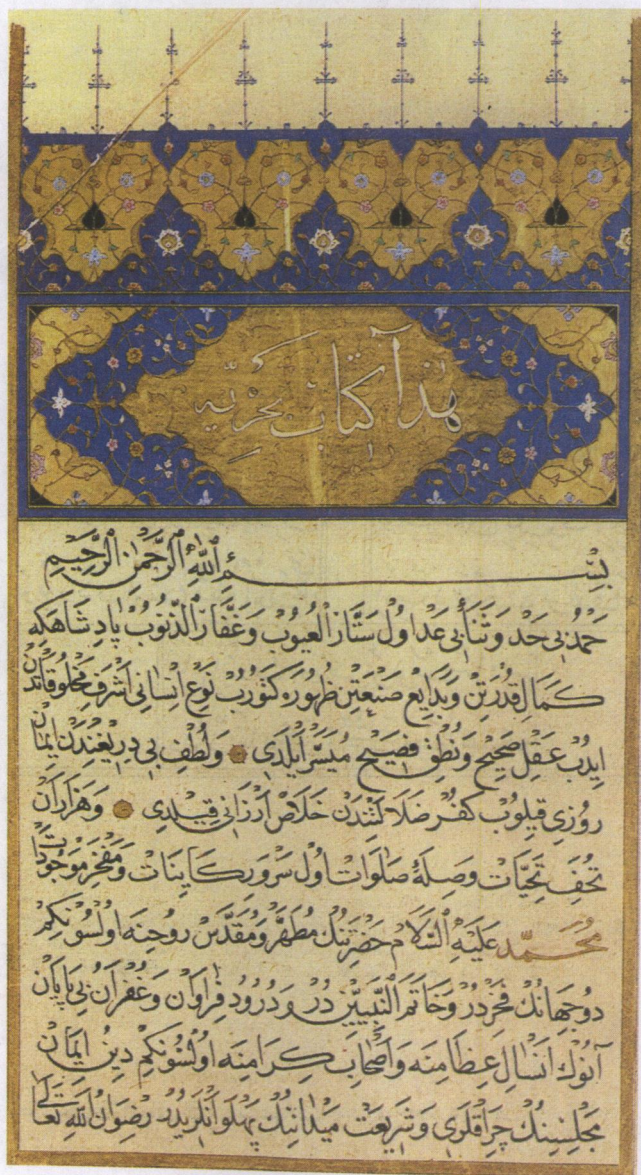 هذا كتاب بحريه
بسم الله الرحمن الرحيم
حمد بى حد وثناء بى عد اول ستار العيوب وغفار الذنوب پادشاهكه
كمال قدرتن وبدايع صنعتن ظهوره كتورب نوع انسانى اشرف مخلوقاتدن
ايدب عقل صحيح ونطق فصيح ميسر ايلدى ولطف بى دريغندن ايمان
روزى قيلوب كفر ضلالتندن خلاص ارزانى قيلدى وهزاران
تحف تحيات وصلهٔ صلوات اول سرور كاينات ومفخر موجودات
محمد عليه السلام حضرتنك مطهر ومقدس روحنه اولسونكم
دو جهانك فخردر وخاتم النبيين در ودرود فراوان وغفران بى پايان
آنوك انسال عظامنه واصحاب كرامنه اولسونكم دين ايمان
مجلسنك چراقلرى وشريعت ميداننك پهلوانلريدر رضوان الله تعالى